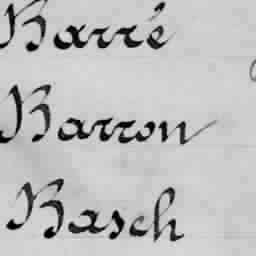 Barré
Barron
Basch